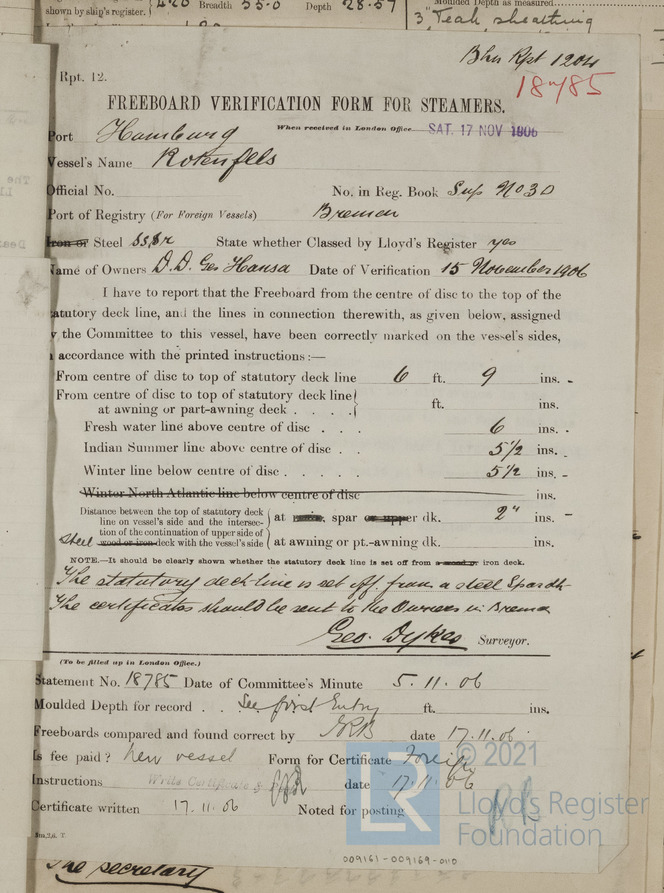 shown by ship's register. Breadth 55.0 Depth 28.57 Moulded Depth as measured
3" Teak sheathing
Bhn Rpt 1204
Rpt. 12.
18785
FREEBOARD VERIFICATION FORM FOR STEAMERS.
When received in London Office SAT. 17 NOV 1906
Port Hamburg
Vessel's Name Rotenfels
Official No. No. in Reg. Book Sup No 30
Port of Registry (For Foreign Vessels) Bremen
Iron or Steel SSSr State whether Classed by Lloyd's Register yes
Name of Owners D.D. Ges Hansa Date of Verification 15 November 1906
I have to report that the Freeboard from the centre of disc to the top of the
statutory deck line, and the lines in connection therewith, as given below, assigned
by the Committee to this vessel, have been correctly marked on the vessel's sides,
accordance with the printed instructions:—
From centre of disc to top of statutory deck line 6 ft. 9 ins.
From centre of disc to top of statutory deck line
at awning or part-awning deck . . . . ft. ins.
Fresh water line above centre of disc . . . 6 ins.
Indian Summer line above centre of disc . . 5 1/2 ins.
Winter line below centre of disc . . . . . 5 1/2 ins.
Winter North Atlantic line below centre of disc ins.
Distance between the top of statutory deck
line on vessel's side and the intersec-
tion of the continuation of upper side of
steel wood or iron deck with the vessel's side
at main, spar or upper dk. 2" ins.
at awning or pt.-awning dk. ins.
NOTE.—It should be clearly shown whether the statutory deck line is set off from a wood or iron deck.
The statutory deck line is set off from a steel Spardk
The certificates should be sent to the Owners in Bremen
Geo. Dykes Surveyor.
(To be filled up in London Office.)
Statement No. 18785 Date of Committee's Minute 5.11.06
Moulded Depth for record . . See first Entry ft. ins.
Freeboards compared and found correct by date 17.11.06
Is fee paid? New vessel Form for Certificate Foreign
Instructions Write Certificate & date 17.11.06
Certificate written 17.11.06 Noted for posting
The secretary
009161-009169-0110
© 2021
LR
Lloyd's Register
Foundation